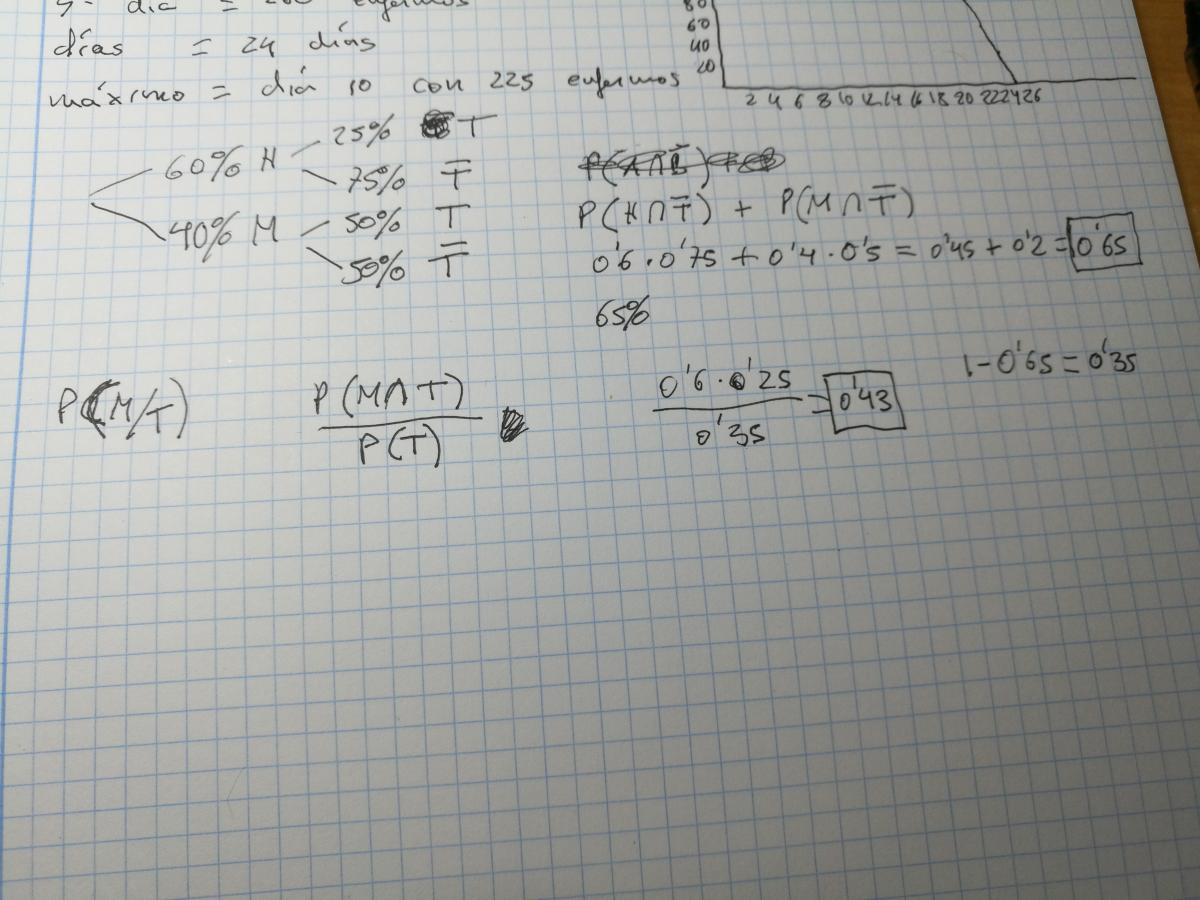 días = 24 días
máximo = día 10 con 225 enfermos
80
60
40
20
2 4 6 8 10 12 14 16 18 20 22 24 26
60% H 25% T
75% T̅
40% M 50% T
50% T̅
P(H∩T̅) + P(M∩T̅)
0'6 · 0'75 + 0'4 · 0'5 = 0'45 + 0'2 = 0'65
65%
1 - 0'65 = 0'35
P(M/T)
P(M∩T)
P(T)
0'6 · 0'25 = 0'43
0'35